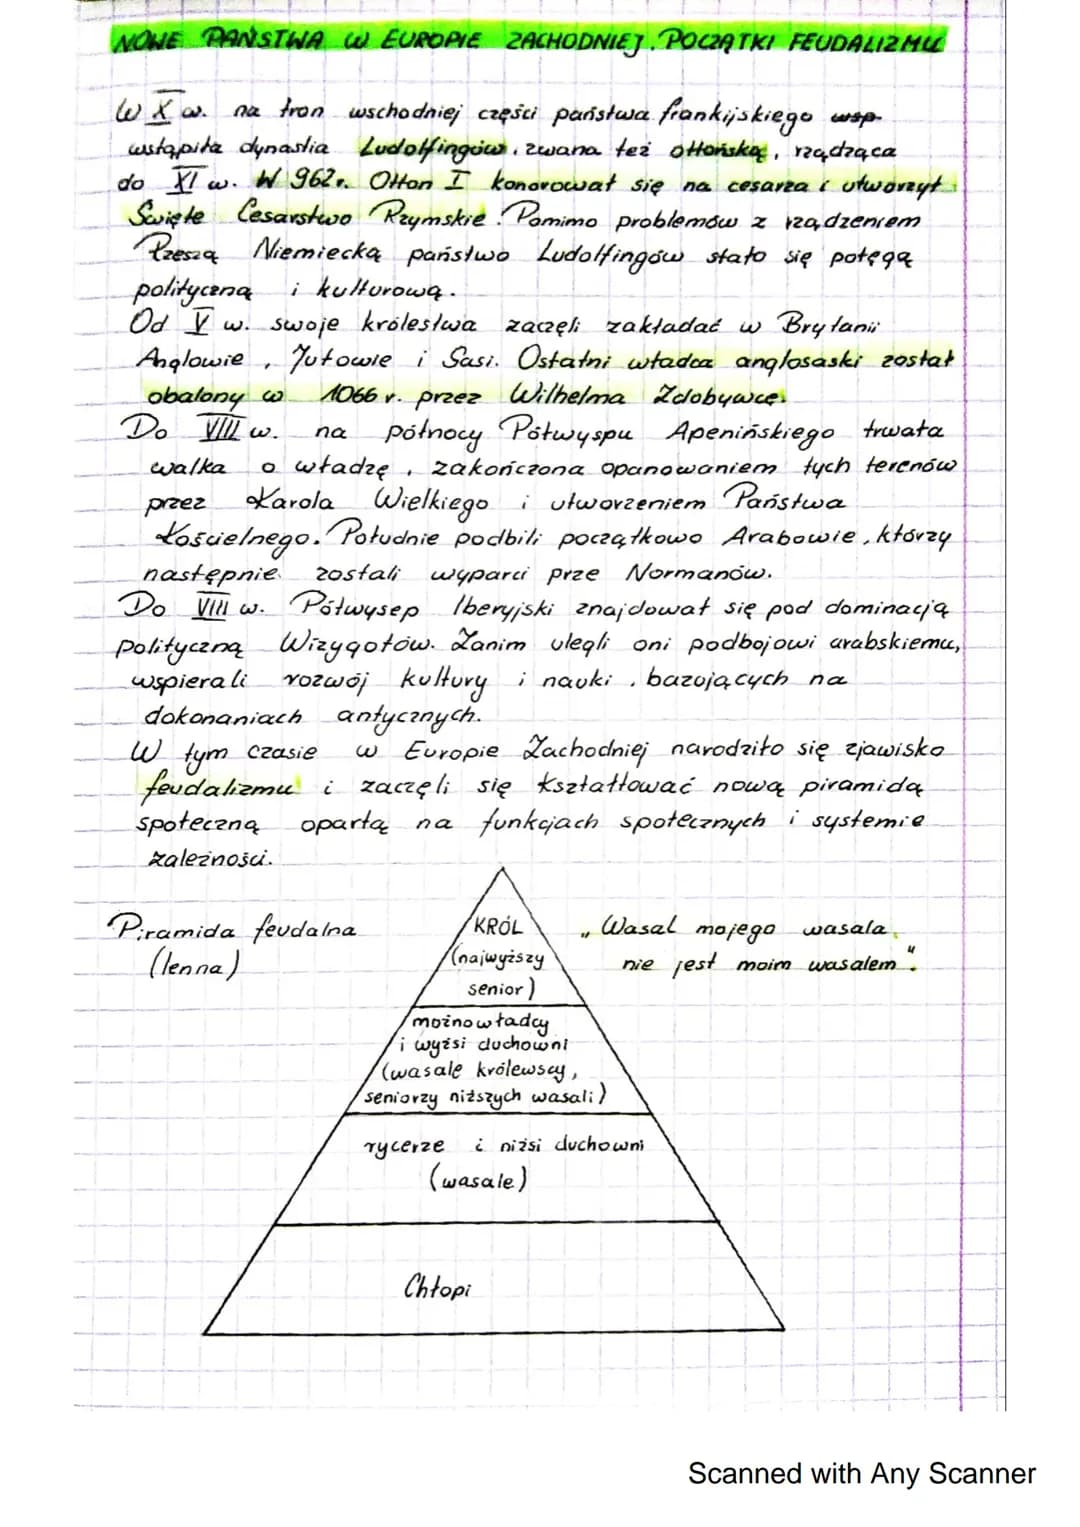 NOWE PAŃSTWA W EUROPIE ZACHODNIEJ. POCZĄTKI FEUDALIZMU
W X w. na tron wschodniej części państwa frankijskiego wsp
wstąpiła dynastia Ludolfingów, zwana też ottońską, rządząca
do XI w. W 962r. Otton I konorował się na cesarza i utworzył
Święte Cesarstwo Rzymskie. Pomimo problemów z rządzeniem
Rzeszą Niemiecką państwo Ludolfingów stało się potęgą
polityczną i kulturową.
Od V w. swoje królestwa zaczęli zakładać w Brytanii
Anglowie, Jutowie i Sasi. Ostatni władca anglosaski został
obalony w 1066 r. przez Wilhelma Zdobywcę.
Do VIII w. na północy Półwyspu Apenińskiego trwała
walka o władzę, zakończona opanowaniem tych terenów
przez Karola Wielkiego i utworzeniem Państwa
Kościelnego. Południe podbili początkowo Arabowie, którzy
następnie zostali wyparci prze Normanów.
Do VIII w. Półwysep Iberyjski znajdował się pod dominacją
polityczną Wizygotów. Zanim ulegli oni podbojowi arabskiemu,
wspierali rozwój kultury i nauki, bazujących na
dokonaniach antycznych.
W tym czasie w Europie Zachodniej narodziło się zjawisko
feudalizmu i zaczęli się kształtować nową piramidą
społeczną opartą na funkcjach społecznych i systemie
zależności.
Piramida feudalna
(lenna)
KRÓL
(najwyższy
senior)
„Wasal mojego wasala
nie jest moim wasalem".
możnowładcy
i wyżsi duchowni
(wasale królewscy,
seniorzy niższych wasali)
rycerze i niżsi duchowni
(wasale)
Chłopi
Scanned with Any Scanner